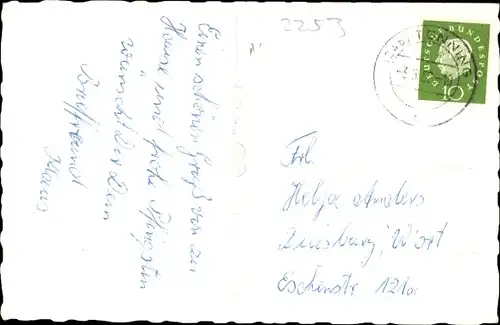 2253
Einen schönen Gruß von zu
Hause und frohe Pfingsten
wünscht Dir Dein
Brieffreund
Klaus
DEUTSCHE BUNDESPOST
10
TÖNNING
Frl.
Helga Anders
Duisburg, Wort
Eschenstr 121a